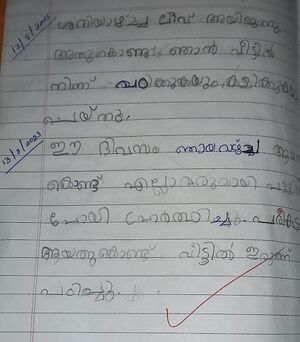 12/8/2023 ശനിയാഴ്ച്ച ലീവ് ആയിരുന്നു.
അതുകൊണ്ടു ഞാൻ വീട്ടിൽ
നിന്ന് പഠിക്കുകയും കളിക്കുക
ചെയ്തു.
13/8/2023 ഈ ദിവസം ഞായറാഴ്ച്ച
കൊണ്ട് എല്ലാവരുമായി
പോയി പ്രാർത്ഥിച്ചു.
ആയതുകൊണ്ട് വീട്ടിൽ ഇരുന്ന്
പഠിച്ചു.